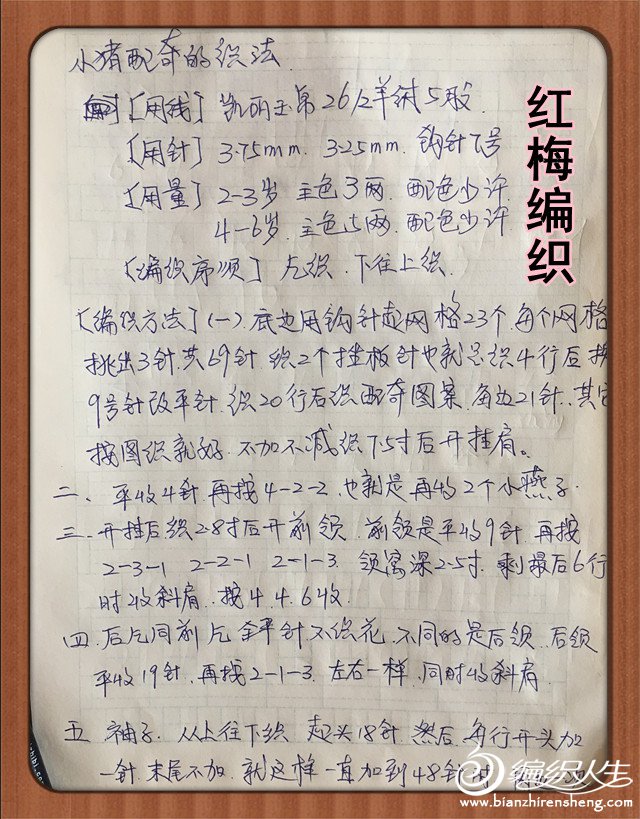 小猪配奇的织法
[用线] 凯丽玉帛26/2羊绒5股
[用针] 3.75mm. 3.25mm. 钩针7号
[用量] 2-3岁 主色3两. 配色少许
4-6岁. 主色5两. 配色少许
[编织序顺] 片织. 下往上织.
[编织方法] (一) 底边用钩针起网格23个. 每个网格
挑出3针. 共69针. 织2个挂板针也就是织4行后 换
9号针改平针. 织20行后织配奇图案. 每边21针、其它
按图织就好. 不加不减织7.5寸后开挂肩。
二、平收4针. 再按4-2-2. 也就是再收2个小燕子.
三、开挂后织2.8寸后开前领. 前领是平收9针. 再按
2-3-1 2-2-1 2-1-3. 领窝深2.5寸. 剩最后6行
时收斜肩. 按4.4.6收
四. 后片同前片 全平针不织花. 不同的是后领. 后领
平收19针. 再按2-1-3. 左右一样. 同时收斜肩.
五 袖子. 从上往下织. 起头18针. 然后. 每行开头加
一针. 末尾不加. 就这样一直加到48针
红梅编织
编织人生
www.bianzhirensheng.com